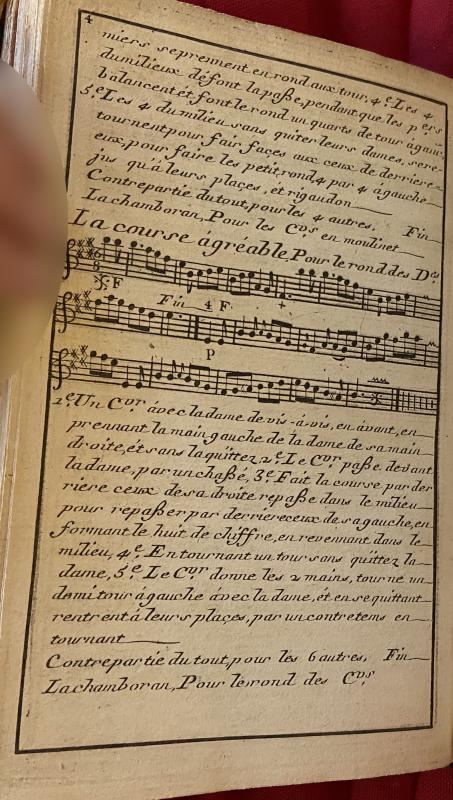 4
miers se prennent en rond aux tour, 4.e Les 4
du milieux défont la paße, pendant que les p.ers
balancent ét font le rond un quarts de tour á gau
5.e Les 4 du milieu sans quiter leurs dames, se re-
tournent pour fair, façes aux ceux de derriere
eux, pour faire les petit rond, 4 par 4 á gauche
jus qu'á leurs plaçes, ét rigaudon
Contrepartie du tout, pour les 4 autres. Fin
La chamboran, Pour les C.vrs en moulinet
La course ágréable, Pour le rond des D.es
F
Fin 4 F
P
1.e Un C.vr ávec la dame de vis-á-vis, en ávant, en
prennant la main gauche de la dame de sa main
droite, ét sans la quitter, 2.e Le C.vr paße devant
la dame, par un chaßé, 3.e Fait la course par der
riere ceux de sa droite repaße dans le milieu
pour repaßer par derriere ceux de sa gauche, en
formant le huit de chiffre, en revennant dans le
milieu, 4.e En tournant un tour sans quittez la
dame, 5.e Le C.vr donne les 2 mains, tourne un
demi tour á gauche ávec la dame, ét en se quittant
rentrent á leurs plaçes, par un contretems en
tournant
Contrepartie du tout, pour les 6 autres, Fin
La chamboran, Pour le rond des C.vrs